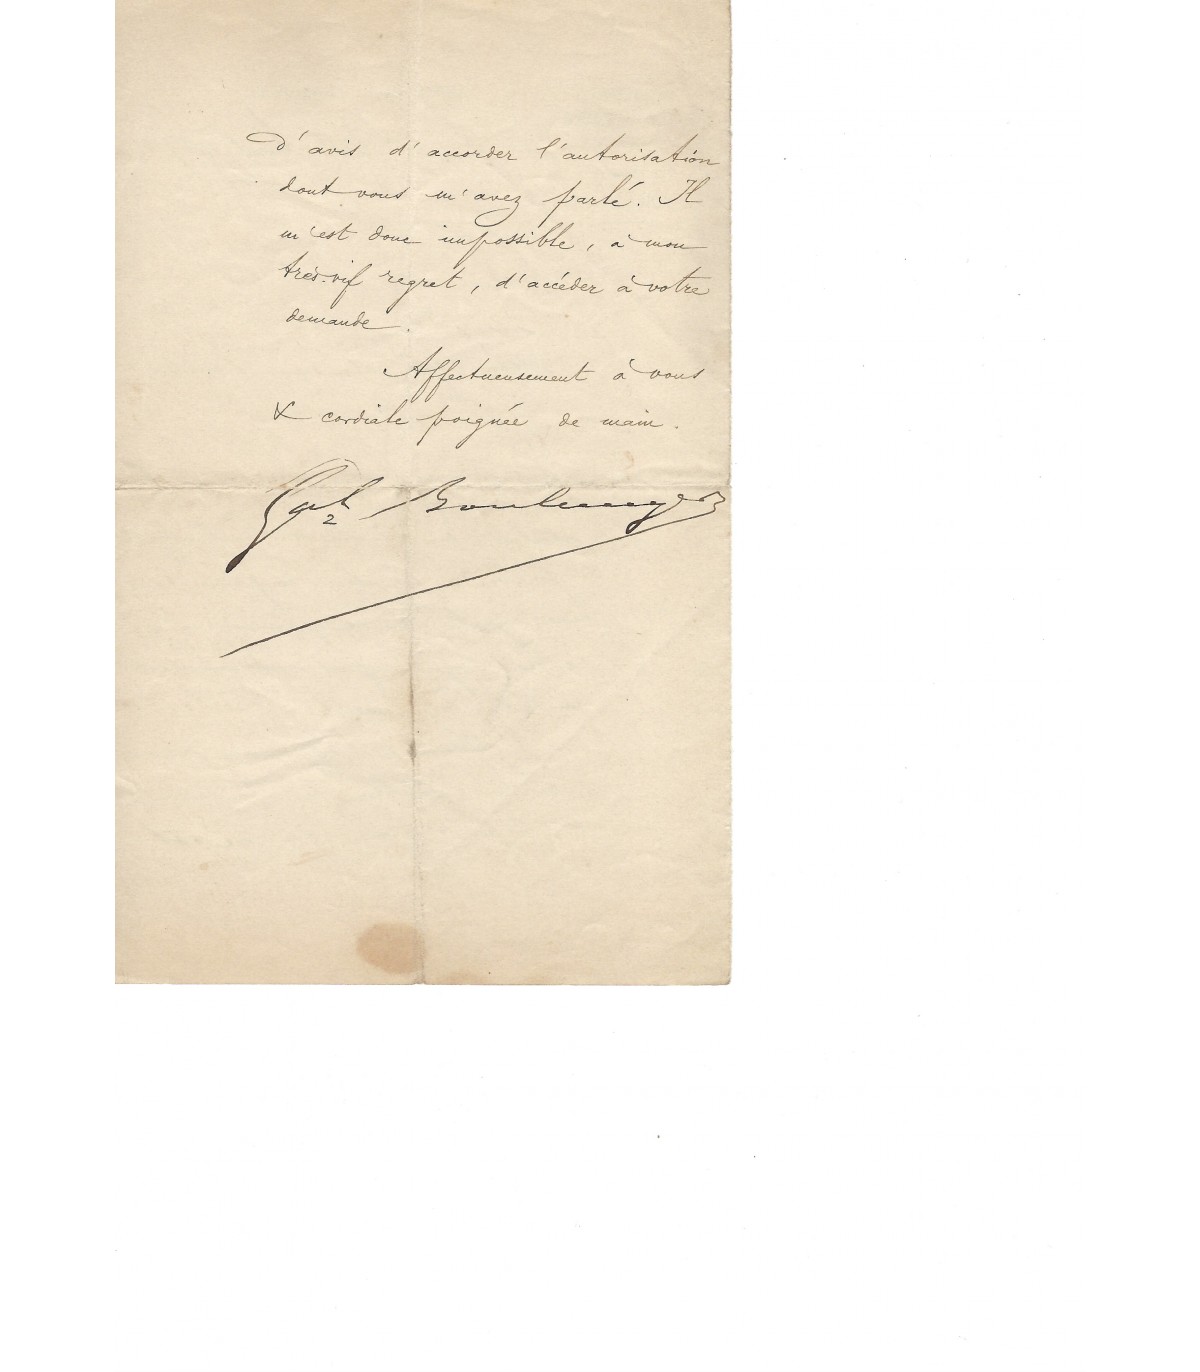 d'avis d'accorder l'autorisation
dont vous m'avez parlé. Il
m'est donc impossible, à mon
très-vif regret, d'accéder à votre
demande.
Affectueusement à vous
& cordiale poignée de main.
Gal Boulanger